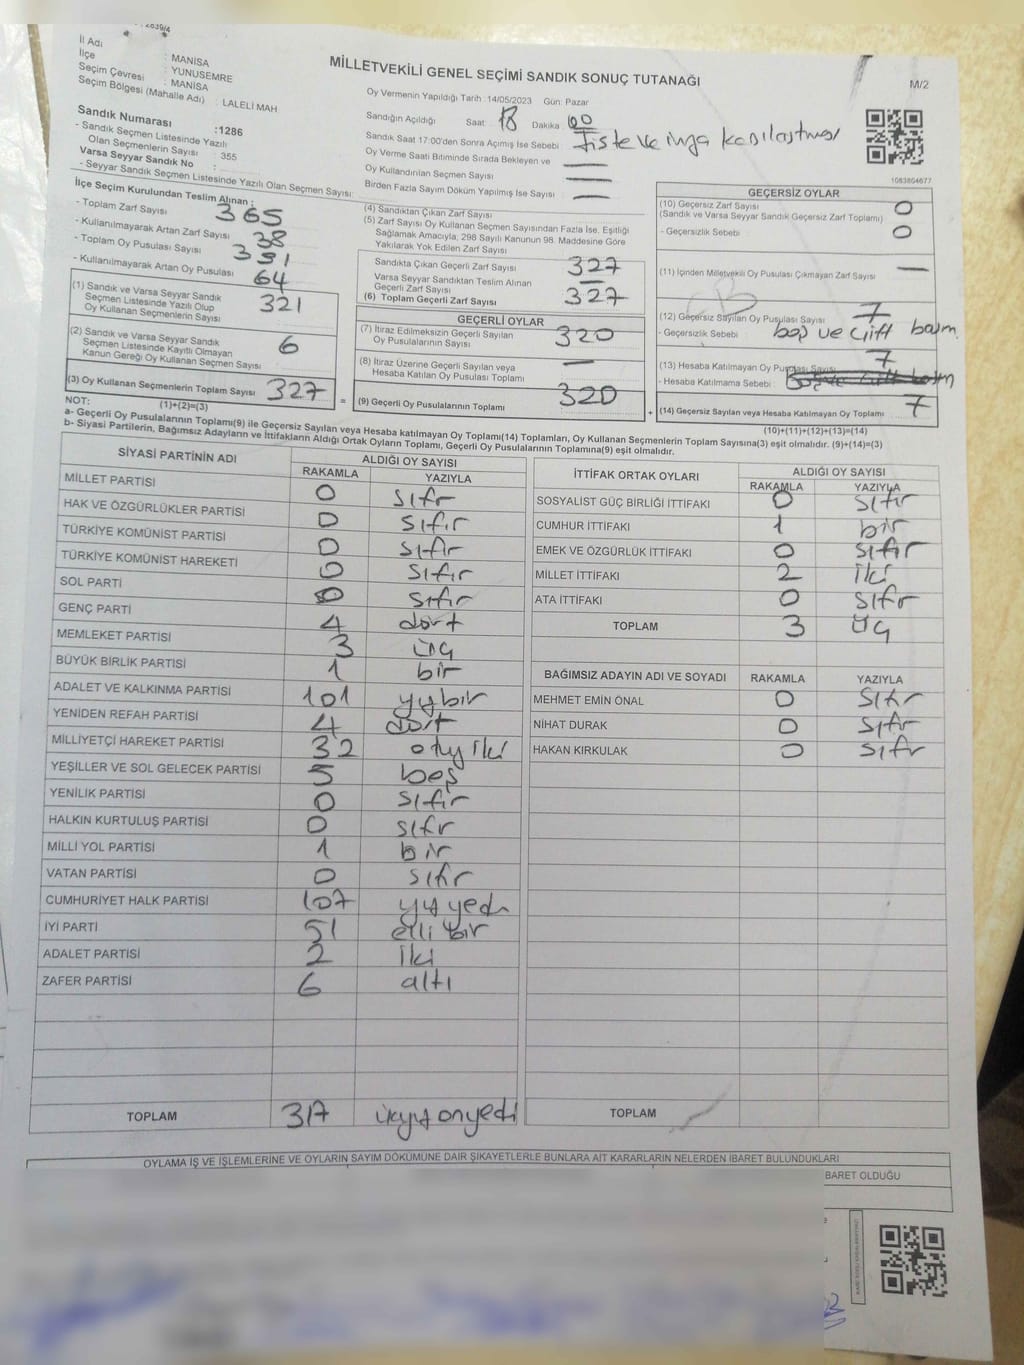 2839/4
İl Adı : MANİSA
İlçe : YUNUSEMRE
Seçim Çevresi : MANİSA
Seçim Bölgesi (Mahalle Adı) : LALELİ MAH
MİLLETVEKİLİ GENEL SEÇİMİ SANDIK SONUÇ TUTANAĞI
M/2
Oy Vermenin Yapıldığı Tarih :14/05/2023 Gün: Pazar
Sandığın Açıldığı Saat 18 Dakika 00
Sandık Saat 17:00'den Sonra Açılmış İse Sebebi Liste ve imza karşılaştırması
Oy Verme Saati Bitiminde Sırada Bekleyen ve
Oy Kullandırılan Seçmen Sayısı —
Birden Fazla Sayım Döküm Yapılmış İse Sayısı —
1083804677
Sandık Numarası :1286
- Sandık Seçmen Listesinde Yazılı
Olan Seçmenlerin Sayısı : 355
Varsa Seyyar Sandık No :
- Seyyar Sandık Seçmen Listesinde Yazılı Olan Seçmen Sayısı:
İlçe Seçim Kurulundan Teslim Alınan :
- Toplam Zarf Sayısı 365
- Kullanılmayarak Artan Zarf Sayısı 38
- Toplam Oy Pusulası Sayısı 391
- Kullanılmayarak Artan Oy Pusulası 64
(1) Sandık ve Varsa Seyyar Sandık
Seçmen Listesinde Yazılı Olup
Oy Kullanan Seçmenlerin Sayısı 321
(2) Sandık ve Varsa Seyyar Sandık
Seçmen Listesinde Kayıtlı Olmayan
Kanun Gereği Oy Kullanan Seçmen Sayısı 6
(3) Oy Kullanan Seçmenlerin Toplam Sayısı 327
(1)+(2)=(3)
(4) Sandıktan Çıkan Zarf Sayısı
(5) Zarf Sayısı Oy Kullanan Seçmen Sayısından Fazla İse, Eşitliği
Sağlamak Amacıyla, 298 Sayılı Kanunun 98. Maddesine Göre
Yakılarak Yok Edilen Zarf Sayısı
Sandıkta Çıkan Geçerli Zarf Sayısı 327
Varsa Seyyar Sandıktan Teslim Alınan
Geçerli Zarf Sayısı —
(6) Toplam Geçerli Zarf Sayısı 327
GEÇERLİ OYLAR
(7) İtiraz Edilmeksizin Geçerli Sayılan
Oy Pusulalarının Sayısı 320
(8) İtiraz Üzerine Geçerli Sayılan veya
Hesaba Katılan Oy Pusulası Toplamı —
= (9) Geçerli Oy Pusulalarının Toplamı 320 +
GEÇERSİZ OYLAR
(10) Geçersiz Zarf Sayısı 0
(Sandık ve Varsa Seyyar Sandık Geçersiz Zarf Toplamı)
- Geçersizlik Sebebi 0
(11) İçinden Milletvekili Oy Pusulası Çıkmayan Zarf Sayısı —
(12) Geçersiz Sayılan Oy Pusulası Sayısı 7
- Geçersizlik Sebebi boş ve Çift basım
(13) Hesaba Katılmayan Oy Pusulası Sayısı 7
- Hesaba Katılmama Sebebi :
(14) Geçersiz Sayılan veya Hesaba Katılmayan Oy Toplamı 7
(10)+(11)+(12)+(13)=(14)
NOT:
a- Geçerli Oy Pusulalarının Toplamı(9) ile Geçersiz Sayılan veya Hesaba katılmayan Oy Toplamı(14) Toplamları, Oy Kullanan Seçmenlerin Toplam Sayısına(3) eşit olmalıdır. (9)+(14)=(3)
b- Siyasi Partilerin, Bağımsız Adayların ve İttifakların Aldığı Ortak Oyların Toplamı, Geçerli Oy Pusulalarının Toplamına(9) eşit olmalıdır.
SİYASİ PARTİNİN ADI ALDIĞI OY SAYISI
RAKAMLA YAZIYLA
MİLLET PARTİSİ 0 sıfır
HAK VE ÖZGÜRLÜKLER PARTİSİ 0 sıfır
TÜRKİYE KOMÜNİST PARTİSİ 0 sıfır
TÜRKİYE KOMÜNİST HAREKETİ 0 sıfır
SOL PARTİ 0 sıfır
GENÇ PARTİ 4 dört
MEMLEKET PARTİSİ 3 üç
BÜYÜK BİRLİK PARTİSİ 1 bir
ADALET VE KALKINMA PARTİSİ 101 yüzbir
YENİDEN REFAH PARTİSİ 4 dört
MİLLİYETÇİ HAREKET PARTİSİ 32 otuz iki
YEŞİLLER VE SOL GELECEK PARTİSİ 5 beş
YENİLİK PARTİSİ 0 sıfır
HALKIN KURTULUŞ PARTİSİ 0 sıfır
MİLLİ YOL PARTİSİ 1 bir
VATAN PARTİSİ 0 sıfır
CUMHURİYET HALK PARTİSİ 107 yüz yedi
İYİ PARTİ 51 elli bir
ADALET PARTİSİ 2 iki
ZAFER PARTİSİ 6 altı
TOPLAM 317 üçyüz onyedi
İTTİFAK ORTAK OYLARI ALDIĞI OY SAYISI
RAKAMLA YAZIYLA
SOSYALİST GÜÇ BİRLİĞİ İTTİFAKI 0 sıfır
CUMHUR İTTİFAKI 1 bir
EMEK VE ÖZGÜRLÜK İTTİFAKI 0 sıfır
MİLLET İTTİFAKI 2 iki
ATA İTTİFAKI 0 sıfır
TOPLAM 3 üç
BAĞIMSIZ ADAYIN ADI VE SOYADI RAKAMLA YAZIYLA
MEHMET EMİN ÖNAL 0 sıfır
NİHAT DURAK 0 sıfır
HAKAN KIRKULAK 0 sıfır
TOPLAM
OYLAMA İŞ VE İŞLEMLERİNE VE OYLARIN SAYIM DÖKÜMÜNE DAİR ŞİKAYETLERLE BUNLARA AİT KARARLARIN NELERDEN İBARET BULUNDUKLARI
BARET OLDUĞU